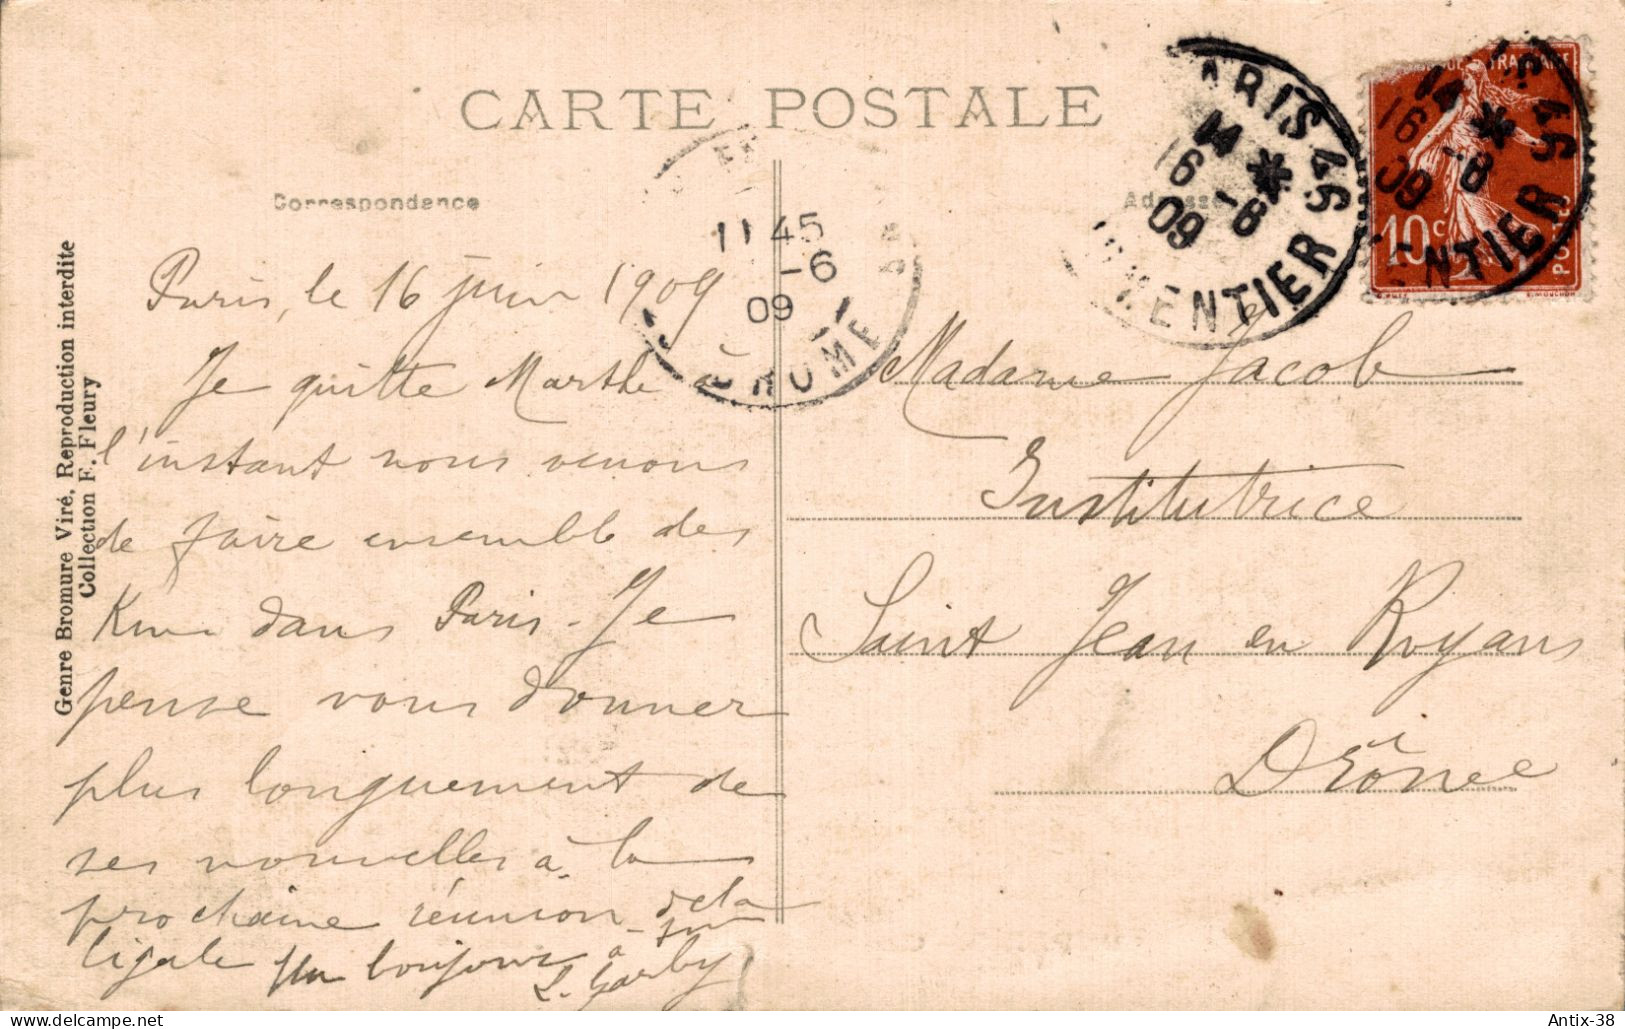 CARTE POSTALE
Correspondance
Adresse
Genre Bromure Viré, Reproduction interdite
Collection F. Fleury
Paris, le 16 juin 1909
Je quitte Marthe à
l'instant nous venons
de faire ensemble des
Km dans Paris. Je
pense vous donner
plus longuement de
ses nouvelles à la
prochaine réunion de la
ligale un bonjour à
L. Garby
Madame Jacob
Institutrice
Saint Jean en Royans
Drôme
PARIS 46
14 *
16 -6
09
MENTIER
11 45
-6
09
DROME
10 c
POSTES
14 *
16 -6
09
46
ENTIER
delcampe.net
Antix-38